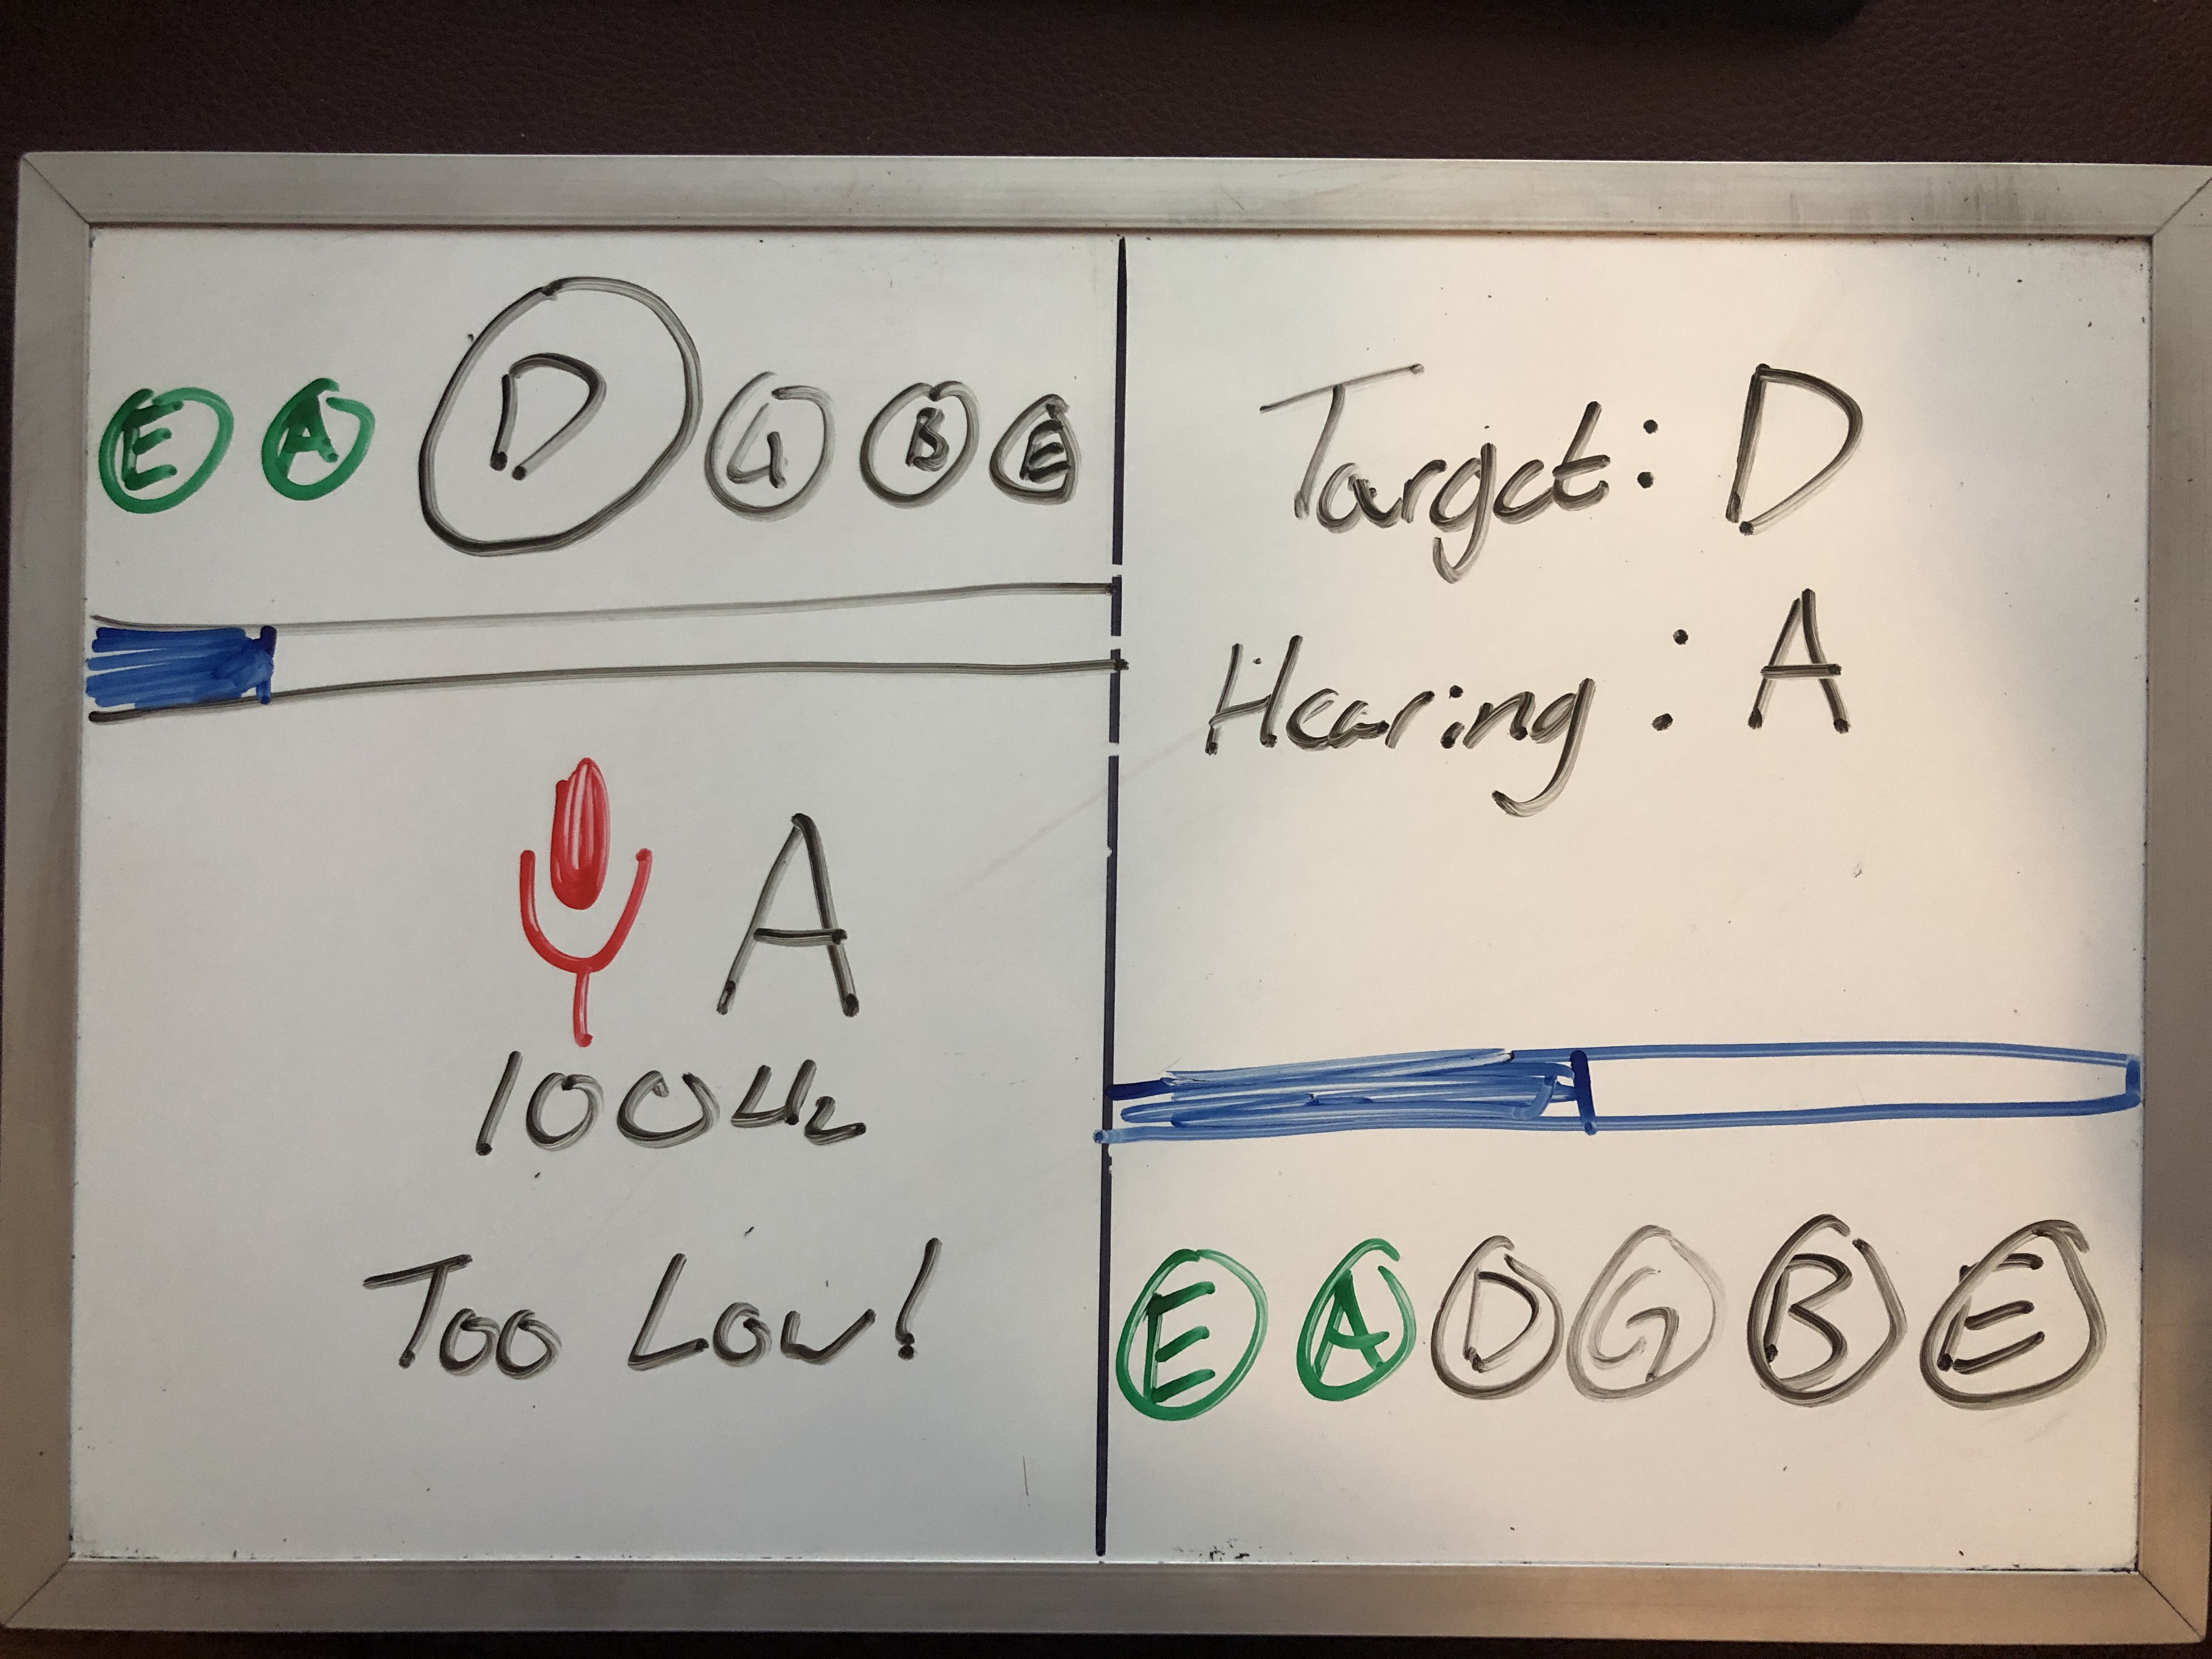 E A D G B E
A
100Hz
Too Low!
Target: D
Hearing: A
E A D G B E